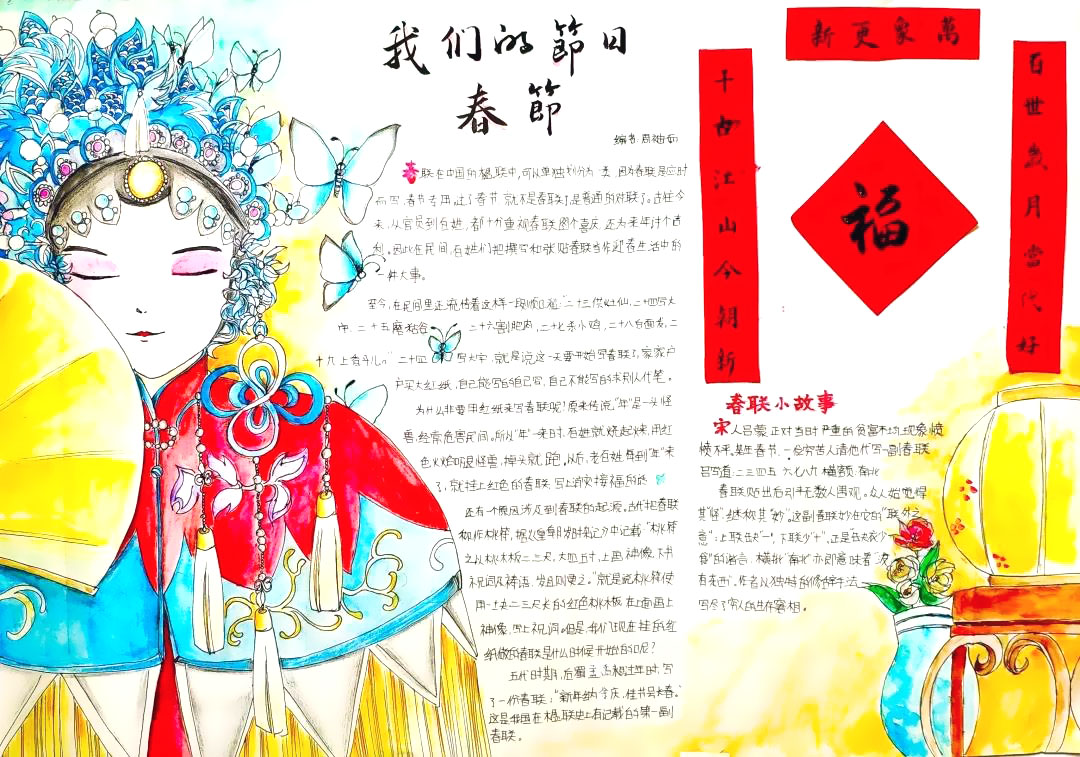 我们的節日
春節
编者:周
春联在中国的楹联中,可以单独划分为一类,因为春联是应时
而写,春节专用,过了春节就不是春联了,是普通的对联了。古往今
来,从官员到百姓,都十分重视春联图个喜庆,还为来年讨个吉
利。因此在民间,百姓们把撰写和张贴春联当作迎春生活中的
一件大事。
至今,在民间里还流传着这样一段顺口溜:"二十三供灶仙,二十四写大
字,二十五磨粘谷,二十六割肥肉,二十七杀小鸡,二十八台面发,二
十九上香斗儿。"二十四写大字,就是说这一天要开始写春联了,家家户
户买大红纸,自己能写的自己写,自己不能写的求别人代笔。
为什么非要用红纸来写春联呢?原来传说"年"是一头怪
兽,经常危害民间。所以"年"一来时,百姓就烧起火来,用红
色火焰吓退怪兽,掉头就跑,以后,老百姓每到"年"来
了,就挂上红色的春联,写上消灾接福的话
还有个原因涉及到春联的起源。古代把春联
称作桃符,据《皇
之以桃木板二三尺,大四五寸,上画神像,下书
祝词及祷语,岁旦则更之。"就是说桃符使
用一块二三尺长的红色桃木板,在上面画上
神像,写上祝词。但是,我们现在挂的红
纸做的春联是什么时候开始的呢?
五代时期,后蜀主孟昶过年时,写
了一份春联:"新年纳今庆,佳书号长春。"
这是我国在楹联史上有记载的第一副
春联。
新更象萬
千古江山今朝新
百世歲月當代好
福
春联小故事
宋人吕蒙正对当时严重的贫富不均现象愤
愤不平,某年春节,一位穷苦人请他代写一副春联
吕写道:二三四五 六七八九 横额:南北
春联贴出后引来无数人围观。众人始觉得
其"怪",继
意":上联缺"一",下联少"十",正是"缺衣少
食"的谐音,横批"南北"亦即意味着"没
有东西"。作者以独特的修辞手法
写尽了穷人的生存窘相。